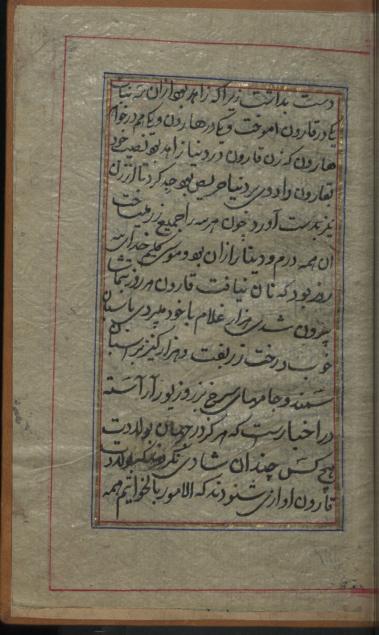 دست بداشت زیرا که زاهد بود از ان
یکی در قارون اموخت و یکی در هارون و یکی هم در خواهر
هارون که زن قارون در دنیا زاهد بود نصیب خود
بقارون داد وی در دنیا حریص بود جهد کرد تا از زن
نیز بدست آورد چون هر سه را جمع زر میساخت
ان همه درم و دینار از ان بود و موسی کلیم خدا را سه
روز بود که نان نیافت قارون هر روز بتماشا
بیرون شدی هزار غلام با خود میبردی با اسبان
خوب در خت زربفت و هزار کنیز بر اسبان
سمند و جامهای سرخ بزر و زیور آراسته
در اخبار است که هرگز در جهان بولادت
هیچ کس چندان شادی نکردند که بولادت
قارون اوازی شنودند که الامور بالخواتیم همه